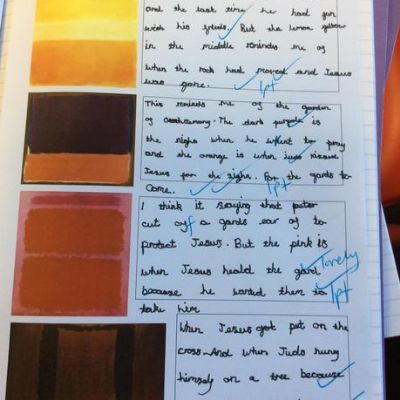 and the last time he had fun
with his friends. But the lemon yellow
in the middle reminds me of
when the rock had moved and Jesus
was gone.
1pt
This reminds me of the garden
of The dark purple is
the night when he went to pray
and the orange is when Juds kissed
Jesus for the sighn. For the gards to
come.
1pt
I think it saying that peter
cut of a gards ear of to
protect Jesus. But the pink is
when Jesus heald the gard
lovely
because he wanted them to
1pt
take him
When Jesus got put on the
cross. And when Juds hung
himself on a tree because